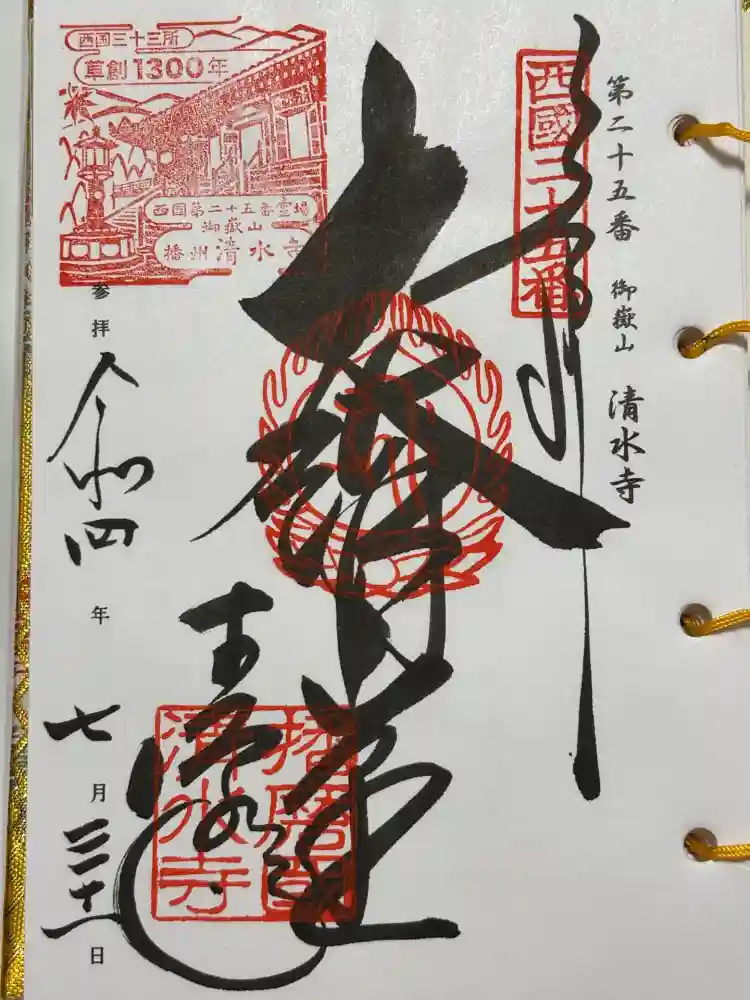 第二十五番 御嶽山 清水寺
西國二十五番
奉拝
大講堂
清水寺
播磨
清水寺
西国三十三所
草創1300年
西国第二十五番霊場
御嶽山
播州清水寺
参拝 令和四年 七月三十一日